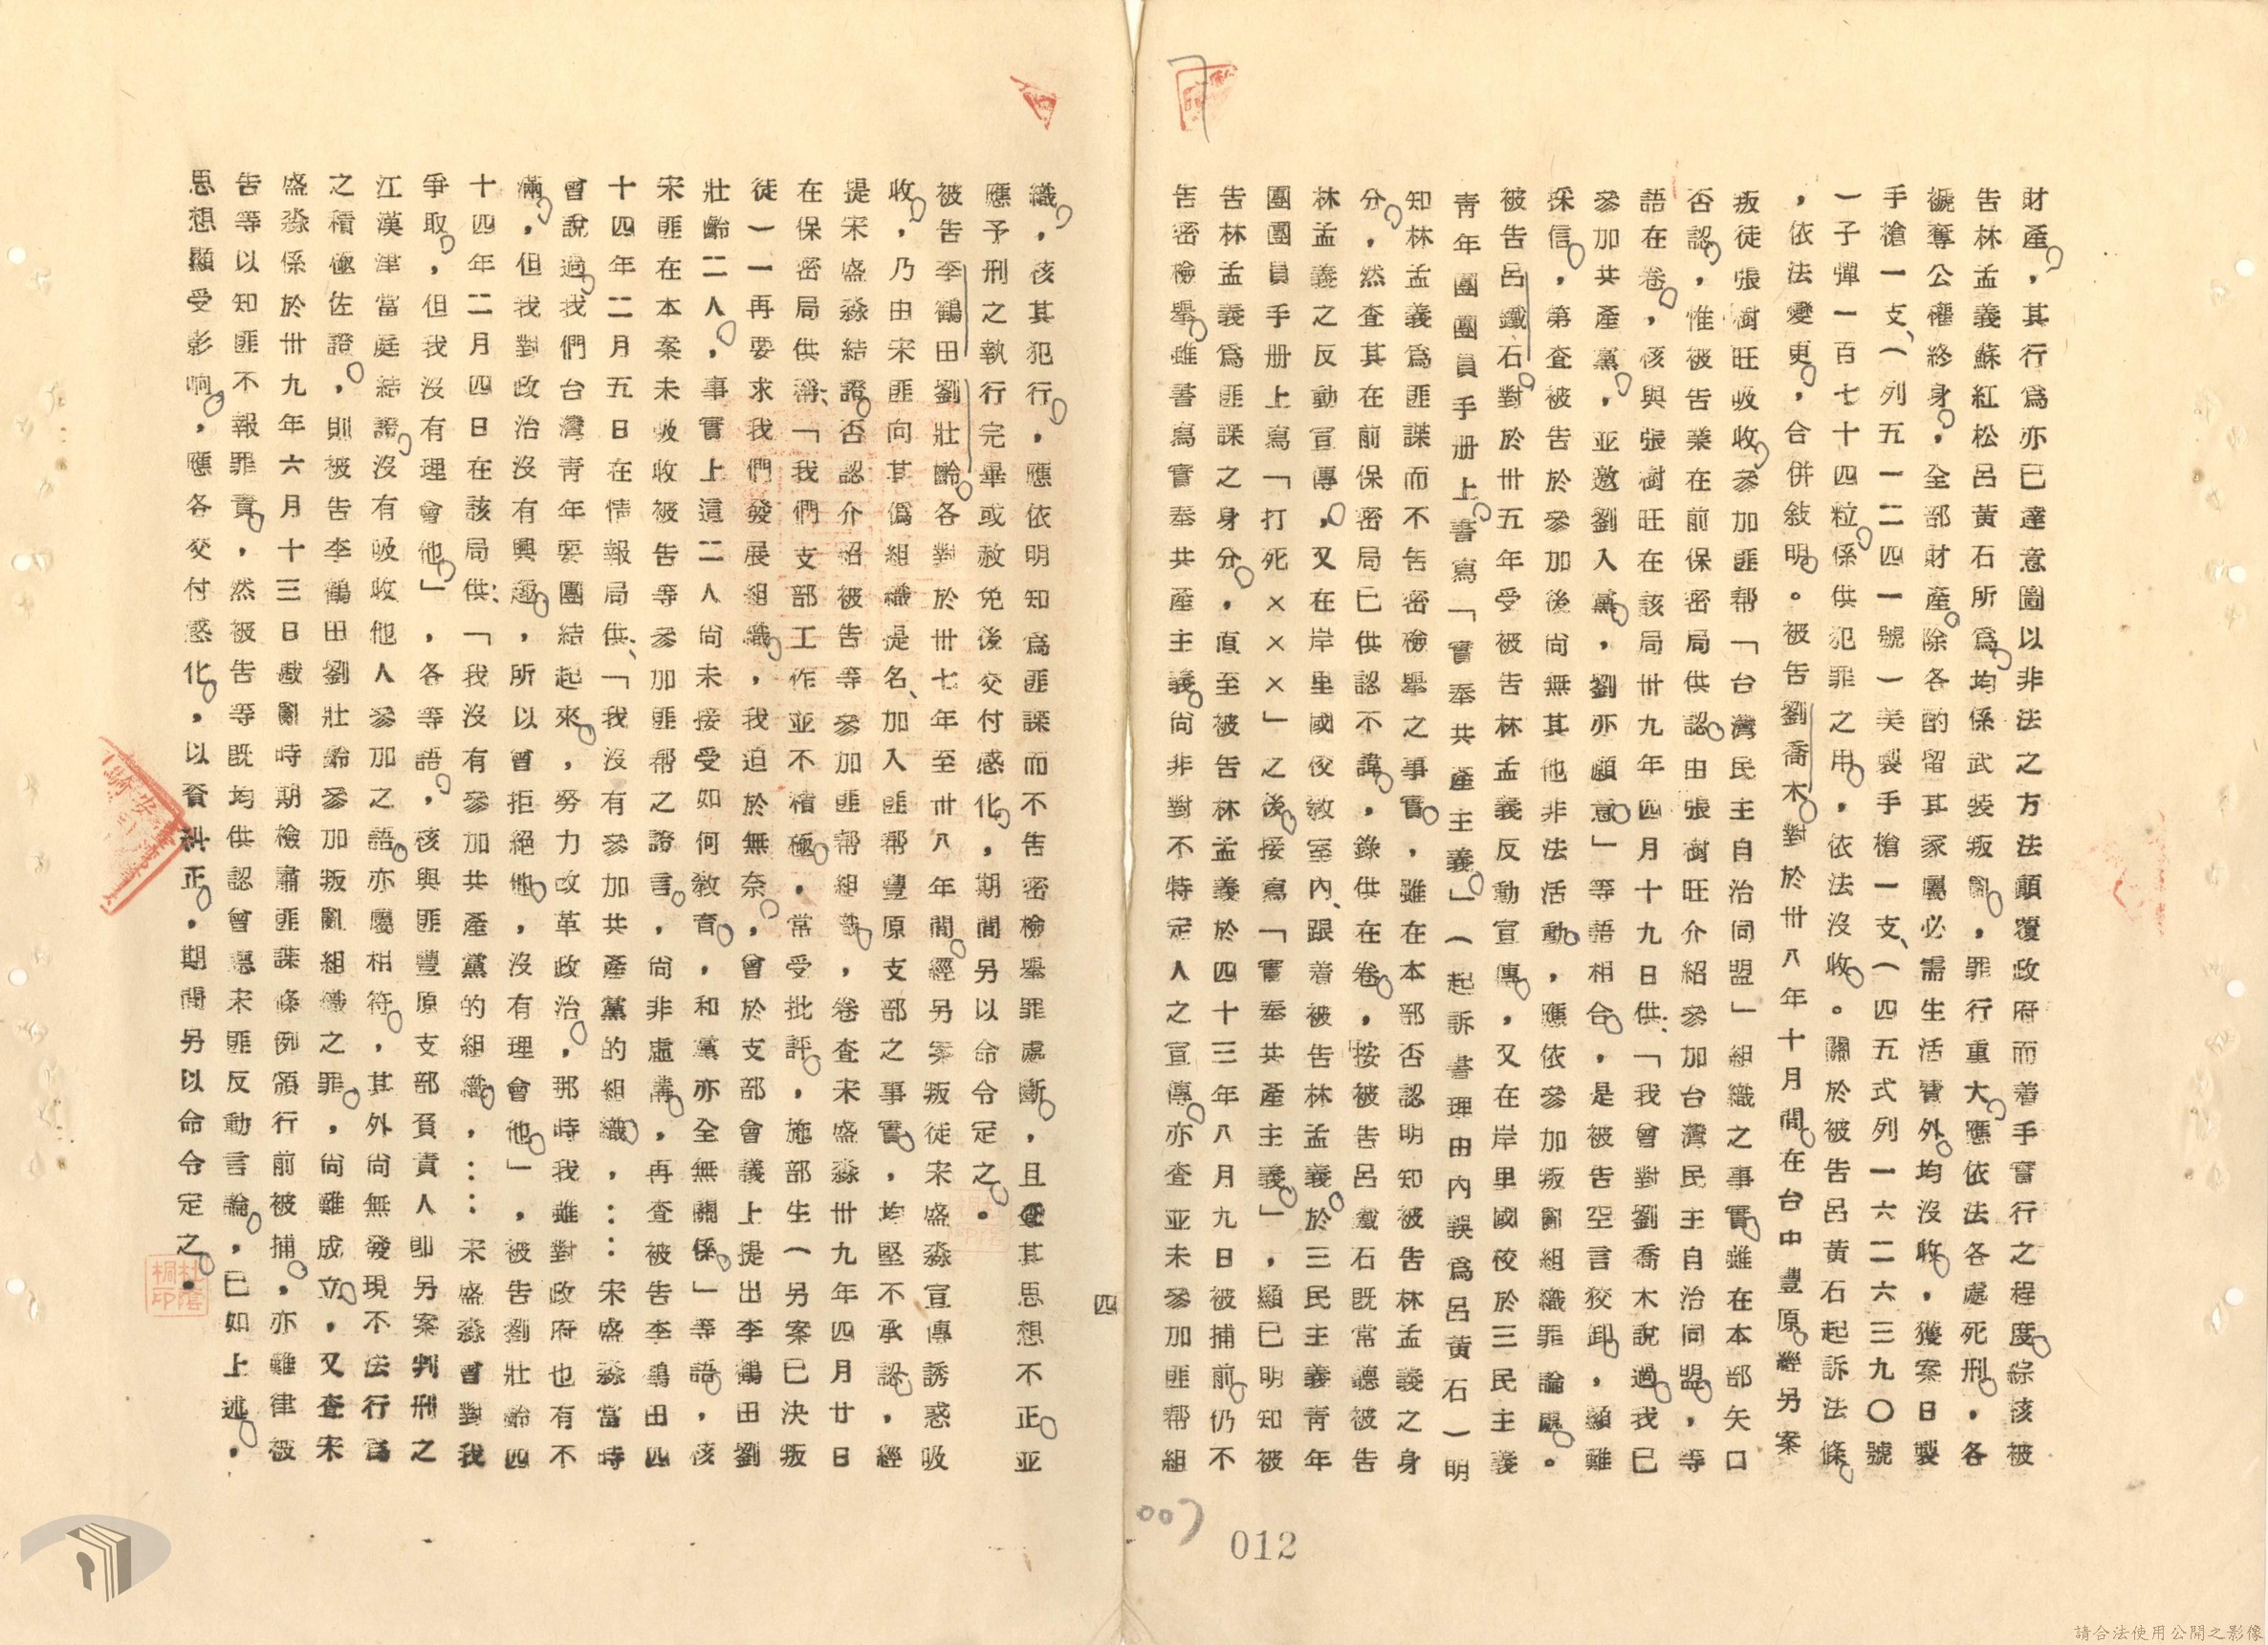 財產,其行為亦已達意圖以非法之方法顛覆政府而着手實行之程度綜核被
告林孟義蘇紅松呂黃石所為均係武裝叛亂,罪行重大應依法各處死刑,各
褫奪公權終身,全部財產除各酌留其家屬必需生活費外均沒收,獲案日製
手槍一支、(列五一二四一號)美製手槍一支、(四五式列一六二六三九〇號
一子彈一百七十四粒係供犯罪之用,依法沒收。關於被告呂黃石起訴法條
,依法變更,合併敍明。被告劉喬木對於卅八年十月間在台中豐原經另案
叛徒張樹旺吸收參加匪帮「台灣民主自治同盟」組織之事實雖在本部矢口
否認,惟被告業在前保密局供認由張樹旺介紹參加台灣民主自治同盟,等
語在卷,核與張樹旺在該局卅九年四月十九日供:「我曾對劉喬木說過我已
參加共產黨,並邀劉入黨,劉亦願意」等語相合,是被告空言狡卸,顯難
採信,第查被告於參加後尚無其他非法活動,應依參加叛亂組織罪論處。
被告呂鐵石對於卅五年受被告林孟義反動宣傳,又在岸里國校於三民主義
青年團團員手册上書寫「實奉共產主義」(起訴書理由內誤為呂黃石)明
知林孟義為匪諜而不告密檢舉之事實,雖在本部否認明知被告林孟義之身
分,然查其在前保密局已供認不諱,錄供在卷,按被告呂鐵石既常聽被告
林孟義之反動宣傳,又在岸里國校教室內、跟着被告林孟義於三民主義青年
團團員手册上寫「打死×××」之後接寫「實奉共產主義」,顯已明知被
告林孟義為匪諜之身分,直至被告林孟義於四十三年八月九日被捕前仍不
告密檢舉雖書寫實奉共產主義尚非對不特定人之宣傳亦查並未參加匪帮組
織,核其犯行,應依明知為匪諜而不告密檢舉罪處斷,且查其思想不正並
應予刑之執行完畢或赦免後交付感化,期間另以命令定之。
被告李鶴田劉壯齡各對於卅七年至卅八年間經另案叛徒宋盛淼宣傳誘惑吸
收,乃由宋匪向其偽組織提名、加入匪帮豐原支部之事實,均堅不承認,經
提宋盛淼結證否認介紹被告等參加匪帮組織,卷查宋盛淼卅九年四月廿日
在保密局供稱:「我們支部工作並不積極,常受批評,施部生(另案已決叛
徒)一再要求我們發展組織,我迫於無奈,曾於支部會議上提出李鶴田劉
壯齡二人,事實上這二人尚未接受如何教育,和黨亦全無關係」等語,核
宋匪在本案未吸收被告等參加匪帮之證言,尚非虛構,再查被告李鶴田四
十四年二月五日在情報局供:「我沒有參加共產黨的組織,……宋盛淼當時
曾說過我們台灣青年要團結起來,努力改革政治,那時我雖對政府也有不
滿,但我對政治沒有興趣,所以曾拒絕他,沒有理會他」,被告劉壯齡四
十四年二月四日在該局供:「我沒有參加共產黨的組織,……宋盛淼曾對我
爭取,但我沒有理會他」,各等語,核與匪豐原支部負責人即另案判刑之
江漢津當庭結證沒有吸收他人參加之語亦屬相符,其外尚無發現不法行為
之積極佐證,則被告李鶴田劉壯齡參加叛亂組織之罪,尚難成立,又查宋
盛淼係於卅九年六月十三日戡亂時期檢肅匪諜條例頒行前被捕,亦難律被
告等以知匪不報罪責,然被告等既均供認曾聽宋匪反動言論,已如上述,
思想顯受影响,應各交付感化,以資糾正,期間另以命令定之。
四
007
012
杜蔭桐印
請合法使用公開之影像